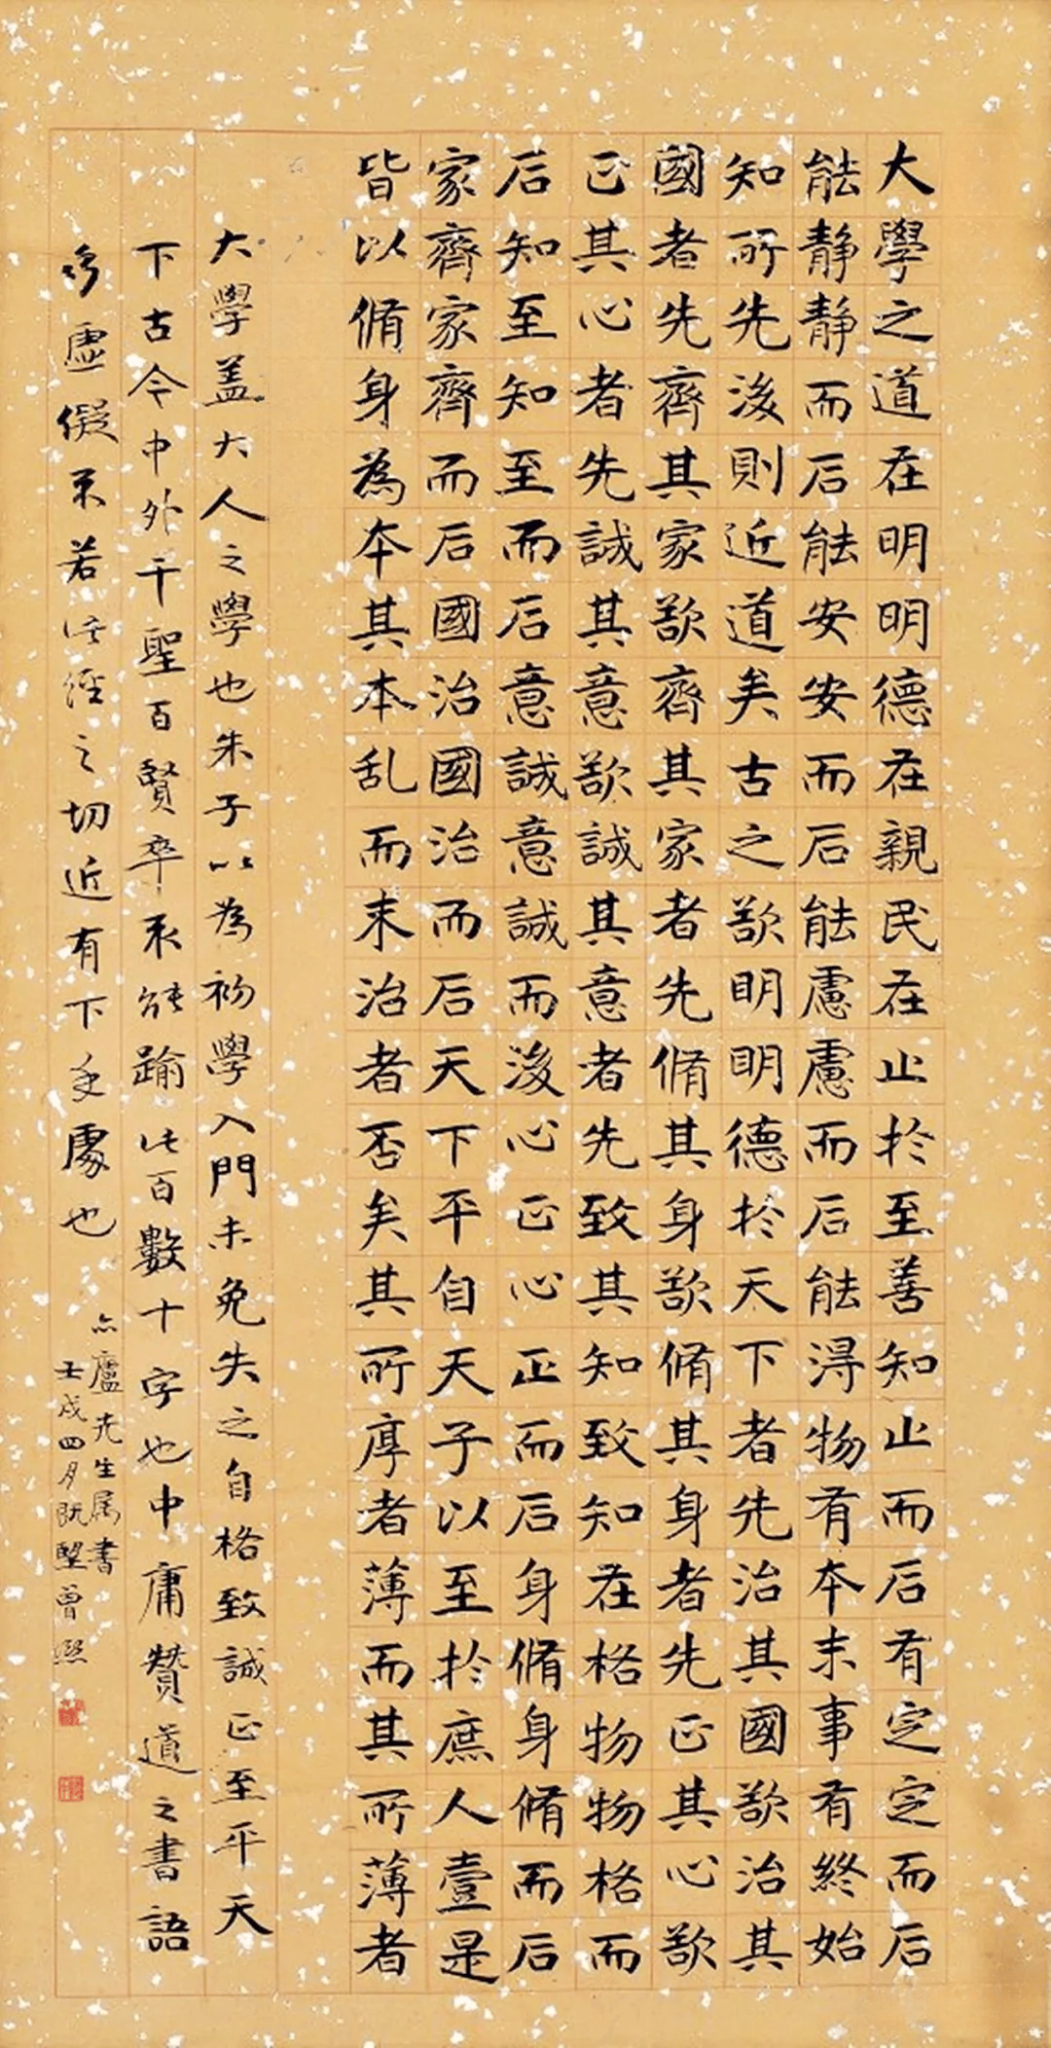 大學之道在明明德在親民在止於至善知止而后有定定而后
能静静而后能安安而后能慮慮而后能淂物有本末事有終始
知所先後則近道矣古之欲明明德於天下者先治其國欲治其
國者先齊其家欲齊其家者先脩其身欲脩其身者先正其心欲
正其心者先誠其意欲誠其意者先致其知致知在格物物格而
后知至知至而后意誠意誠而後心正心正而后身脩身脩而后
家齊家齊而后國治國治而后天下平自天子以至於庶人壹是
皆以脩身為本其本乱而末治者否矣其所厚者薄而其所薄者
大學盖大人之學也朱子以為初學入門未免失之自格致誠正至平天
下古今中外千聖百賢卒不能踰此百數十字也中庸贊道之書語
虛儗不若此經之切近有下手處也
廬先生属書
壬戌四月既望曾熙